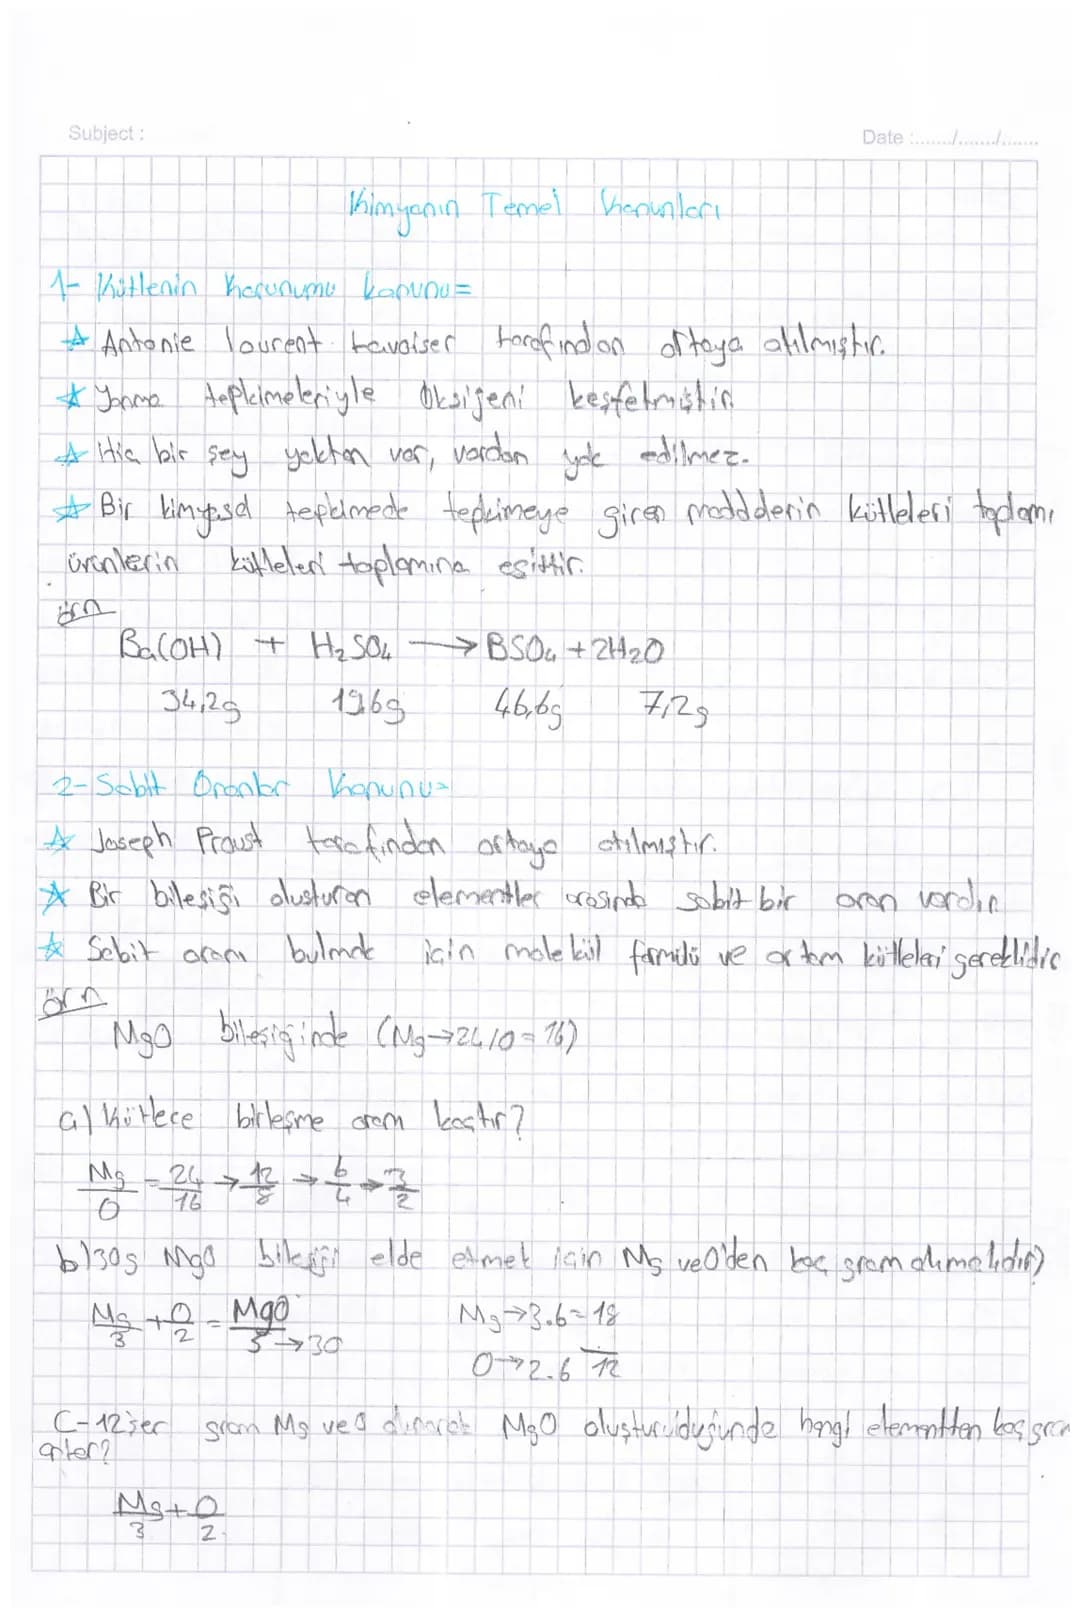 Subject :
Date :......../......../........
Kimyanın Temel Kanunları
1- Kütlenin Korunumu kanunu=
☆ Antonie lourent lavoiser tarafından ortaya atılmıştır.
☆ Yanma tepkimeleriyle Oksijeni keşfetmiştir.
☆ Hiç bir şey yoktan var, vardan yok edilmez.
☆ Bir kimyasal tepkimede tepkimeye giren maddderin kütleleri toplamı
ürünlerin kütleleri toplamına eşittir.
örn
Ba(OH) + H2SO4 → BSO4 + 2H2O
34,2g 19,6g 46,6g 7,2g
2- Sabit Oranlar Kanunu=
☆ Joseph Proust tarafından ortaya atılmıştır.
☆ Bir bileşiği oluşturan elementler arasında sabit bir oran vardır.
☆ Sabit oranı bulmak için molekül formülü ve ortam kütleleri gereklidir
örn
MgO bileşiğinde (Mg→24/O=16)
a) Kütlece birleşme oranı kaçtır?
Mg/O = 24/16 → 12/8 → 6/4 → 3/2
b) 30g MgO bileşiği elde etmek için Mg ve O'den kaç gram alımalıdır?
Mg/3 + O/2 = MgO/5 → 30 Mg→3.6=18
O→2.6 12
C- 12şer gram Mg ve O alınarak MgO oluşturulduğunda hangi elementten kaç gram
artar?
Mg/3 + O/2